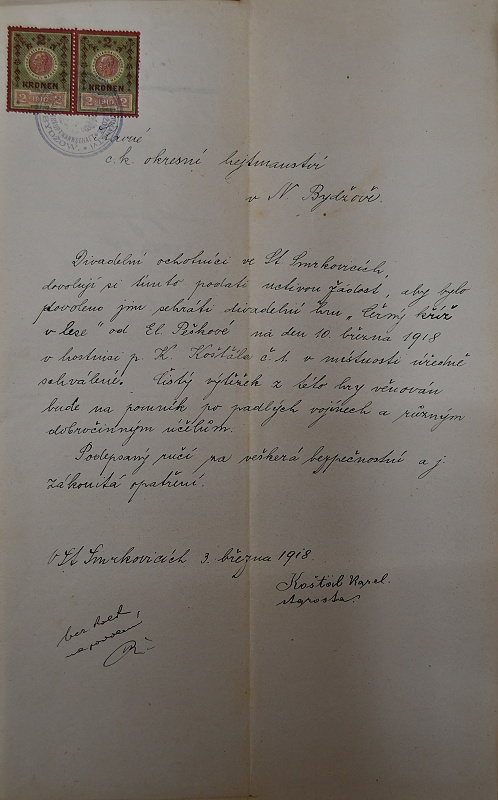 2 2
KRONEN KRONEN
2 1910 2 2 1910 2
Slavné
c. k. okresní hejtmanství
v N. Bydžově.
Divadelní ochotníci ve St. Smrkovicích,
dovolují si tímto podati uctivou žádost, aby bylo
povoleno jim sehráti divadelní hru „Černý kříž
v lese" od El. Peškové na den 10. března 1918
v hostinci p. K. Košťála č. 1. v místnosti úředně
schválené. Čistý výtěžek z této hry věnován
bude na pomník po padlých vojínech a různým
dobročinným účelům.
Podepsaný ručí za veškerá bezpečnostní a j.
zákonitá opatření.
V St. Smrkovicích 3. března 1918.
Košťál Karel.
starosta.
bez